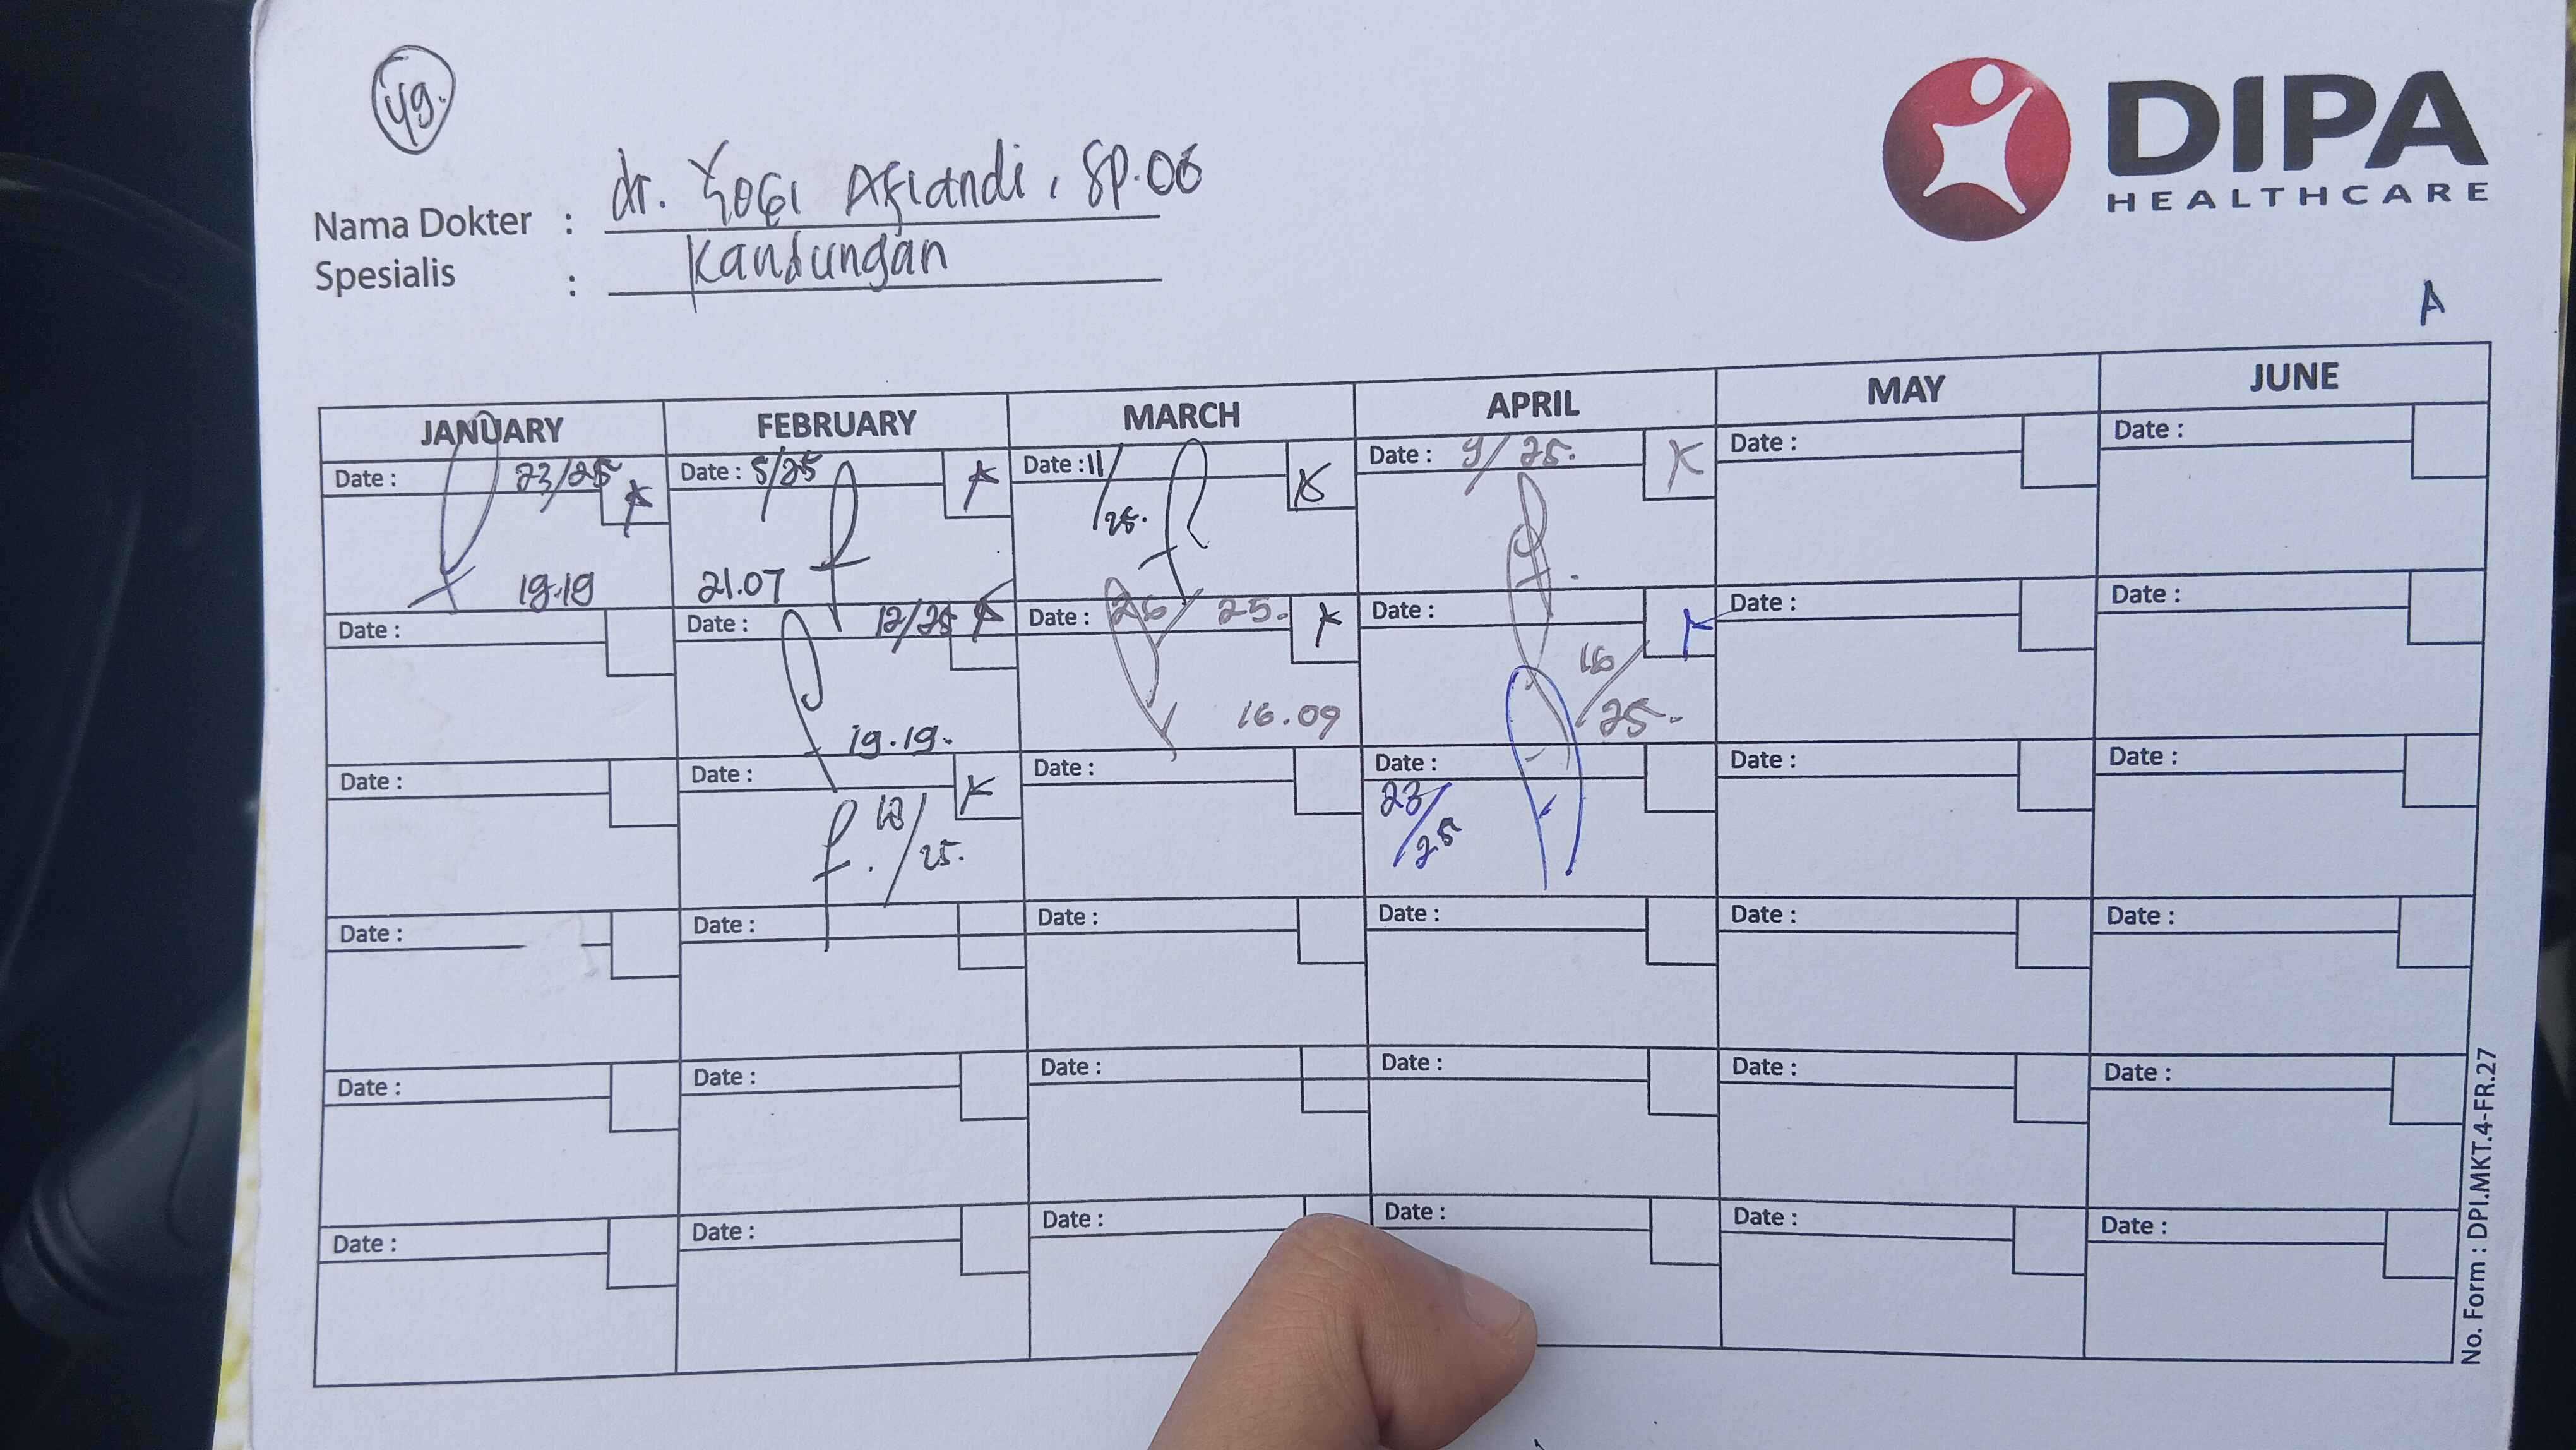 49.
DIPA
HEALTHCARE
Nama Dokter : dr. Yogi Afiandi, Sp.OG
Spesialis : Kandungan
A
JANUARY FEBRUARY MARCH APRIL MAY JUNE
Date : 23/25 Date : 5/25 Date : 11/25. Date : 9/25. Date : Date :
19.19 21.07
Date : Date : 12/25 Date : 26/25. Date : 16/25. Date : Date :
19.19. 16.09
Date : Date : 18/25. Date : Date : 23/25 Date : Date :
Date : Date : Date : Date : Date : Date :
Date : Date : Date : Date : Date : Date :
Date : Date : Date : Date : Date : Date :
No. Form : DPI.MKT.4-FR.27